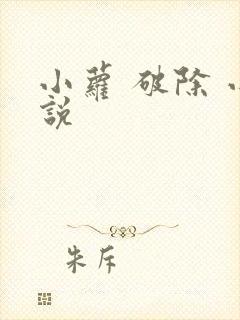 小蘿 破除 小
說
朱斥